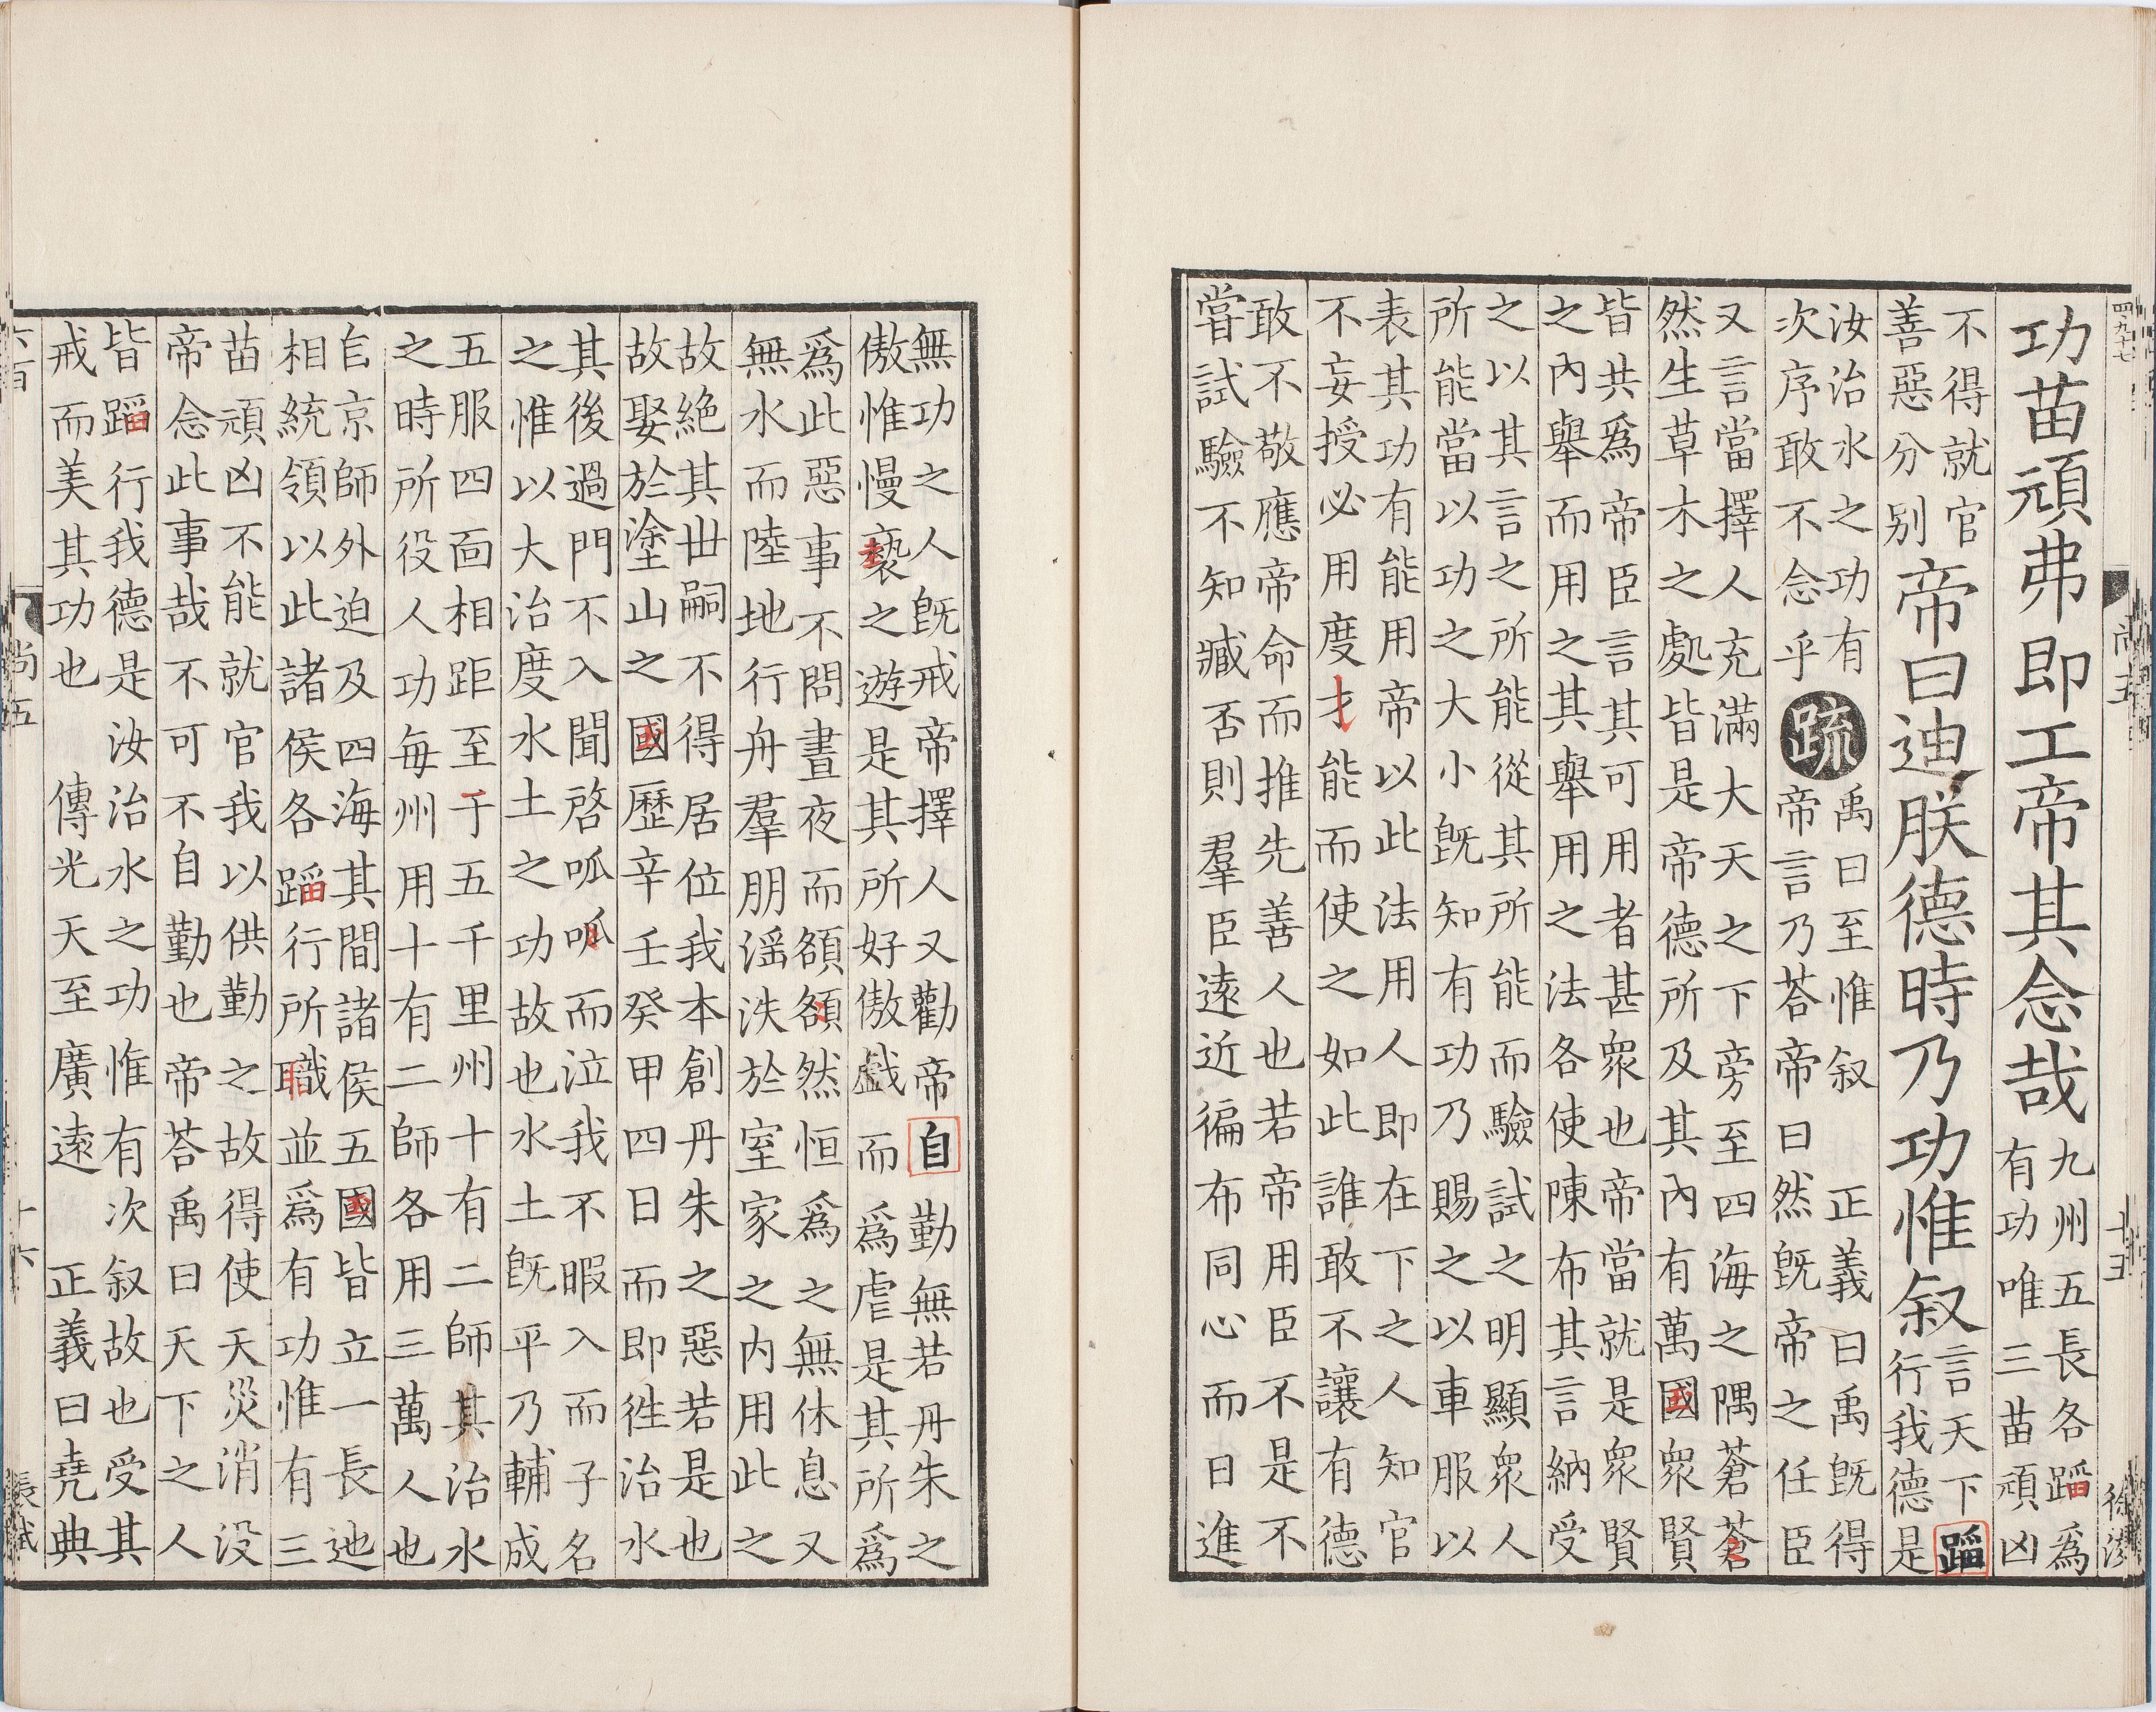 功苗頑弗即工帝其念哉
九州五長各蹈爲
有功唯三苗頑凶
不得就官
善惡分别
帝曰迪朕德時乃功惟叙
言天下蹈
行我德是
汝治水之功有
次序敢不念乎
疏
禹曰至惟叙 正義曰禹既得
帝言乃荅帝曰然既帝之任臣
又言當擇人充滿大天之下旁至四海之隅蒼蒼
然生草木之處皆是帝德所及其內有萬國衆賢
皆共爲帝臣言其可用者甚衆也帝當就是衆賢
之內舉而用之其舉用之法各使陳布其言納受
之以其言之所能從其所能而驗試之明顯衆人
所能當以功之大小旣知有功乃賜之以車服以
表其功有能用帝以此法用人即在下之人知官
不妄授必用度才能而使之如此誰敢不讓有德
敢不敬應帝命而推先善人也若帝用臣不是不
嘗試驗不知臧否則羣臣遠近徧布同心而日進
四九十七
尚五
十五
無功之人旣戒帝擇人又勸帝自勤無若丹朱之
傲惟慢褻之遊是其所好傲戲而爲虐是其所爲
爲此惡事不問晝夜而頟頟然恒爲之無休息又
無水而陸地行舟羣朋淫泆於室家之内用此之
故絶其世嗣不得居位我本創丹朱之惡若是也
故娶於塗山之國歷辛壬癸甲四日而即徃治水
其後過門不入聞啓呱呱而泣我不暇入而子名
之惟以大治度水土之功故也水土旣平乃輔成
五服四面相距至于五千里州十有二師其治水
之時所役人功每州用十有二師各用三萬人也
自京師外迫及四海其間諸侯五國皆立一長迆
相統領以此諸侯各蹈行所職並爲有功惟有三
苗頑凶不能就官我以供勤之故得使天災消没
帝念此事哉不可不自勤也帝荅禹曰天下之人
皆蹈行我德是汝治水之功惟有次叙故也受其
戒而美其功也 傳光天至廣遠 正義曰堯典
六百
尚五
十六